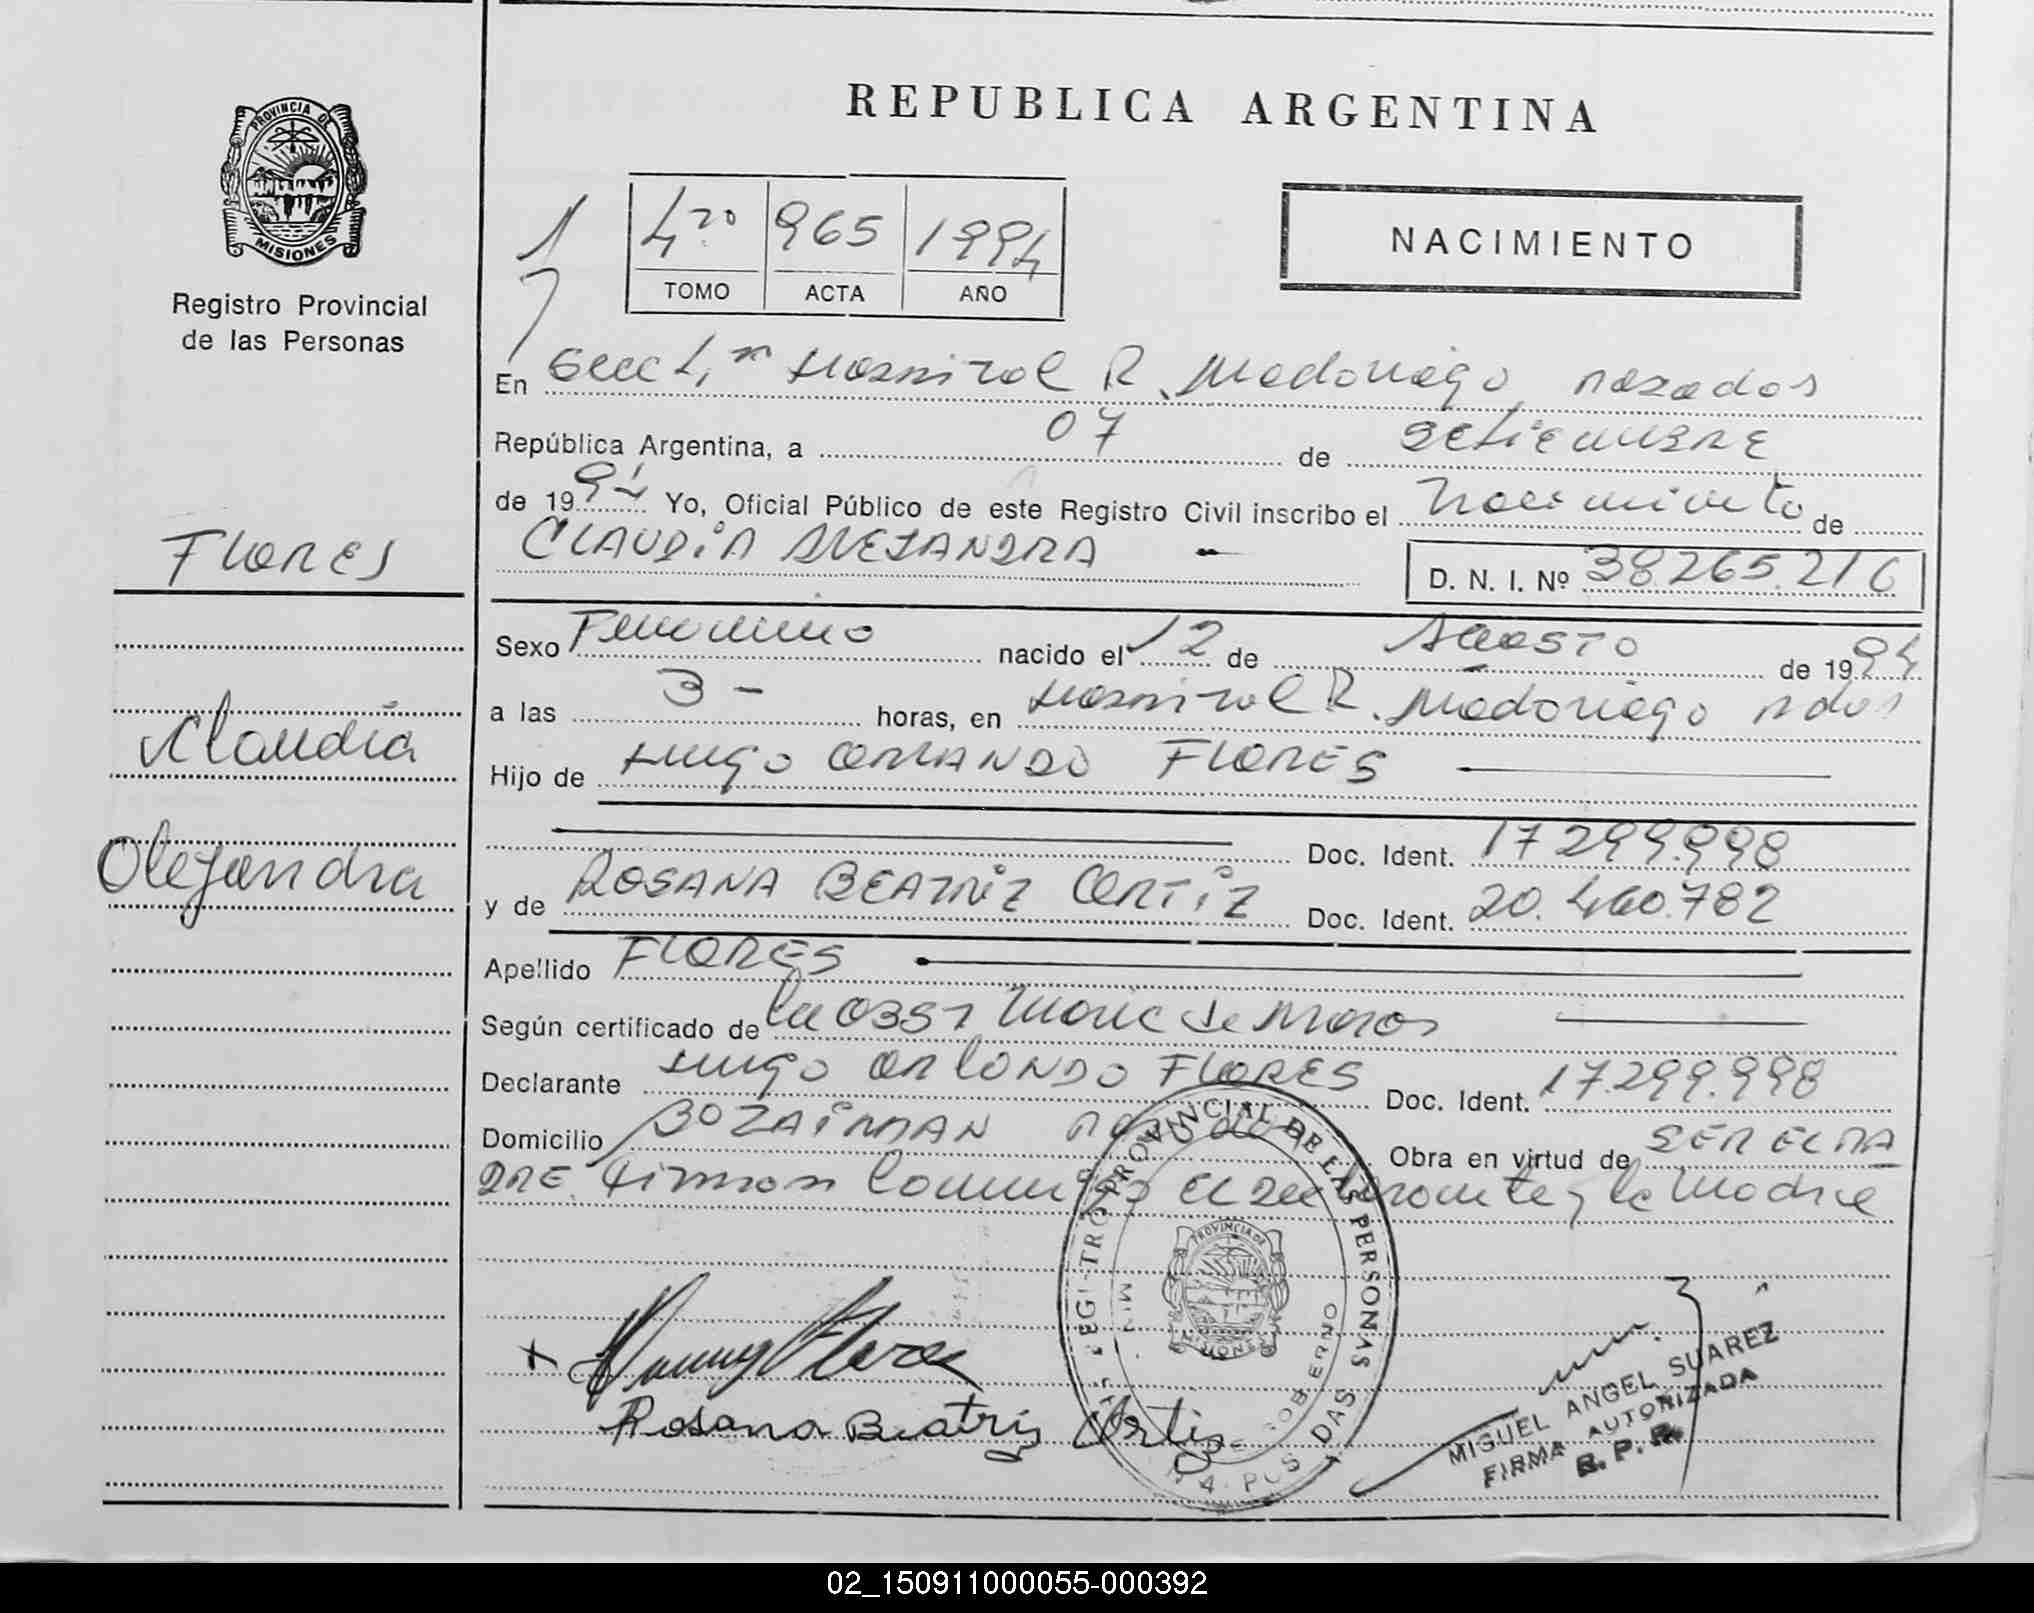 REPUBLICA ARGENTINA
PROVINCIA DE
MISIONES
Registro Provincial
de las Personas
4to 965 1994
TOMO ACTA AÑO
NACIMIENTO
En Secc 4ta Hospital R. Madariaga, Posadas
República Argentina, a 07 de SETIEMBRE
de 1994 Yo, Oficial Público de este Registro Civil inscribo el Nacimiento de
CLAUDIA ALEJANDRA
D. N. I. Nº 38.265.216
FLORES
Claudia
Alejandra
Sexo Femenino nacido el 12 de AGOSTO de 1994
a las 3 - horas, en Hospital R. Madariaga Pdas
Hijo de Hugo ORLANDO FLORES
Doc. Ident. 17.299.998
y de ROSANA BEATRIZ ORTIZ Doc. Ident. 20.460.782
Apellido FLORES
Según certificado de la OBST
Declarante Hugo ORLANDO FLORES Doc. Ident. 17.299.998
Domicilio Posadas Obra en virtud de SER EL PA
DRE. Firman Conmigo el declarante y la Madre
Rosana Beatriz Ortiz
REGISTRO PROVINCIAL DE LAS PERSONAS
MIN DE GOBIERNO
4 POSADAS
PROVINCIA DE
MISIONES
MIGUEL ANGEL SUAREZ
FIRMA AUTORIZADA
R. P. P.
02_150911000055-000392